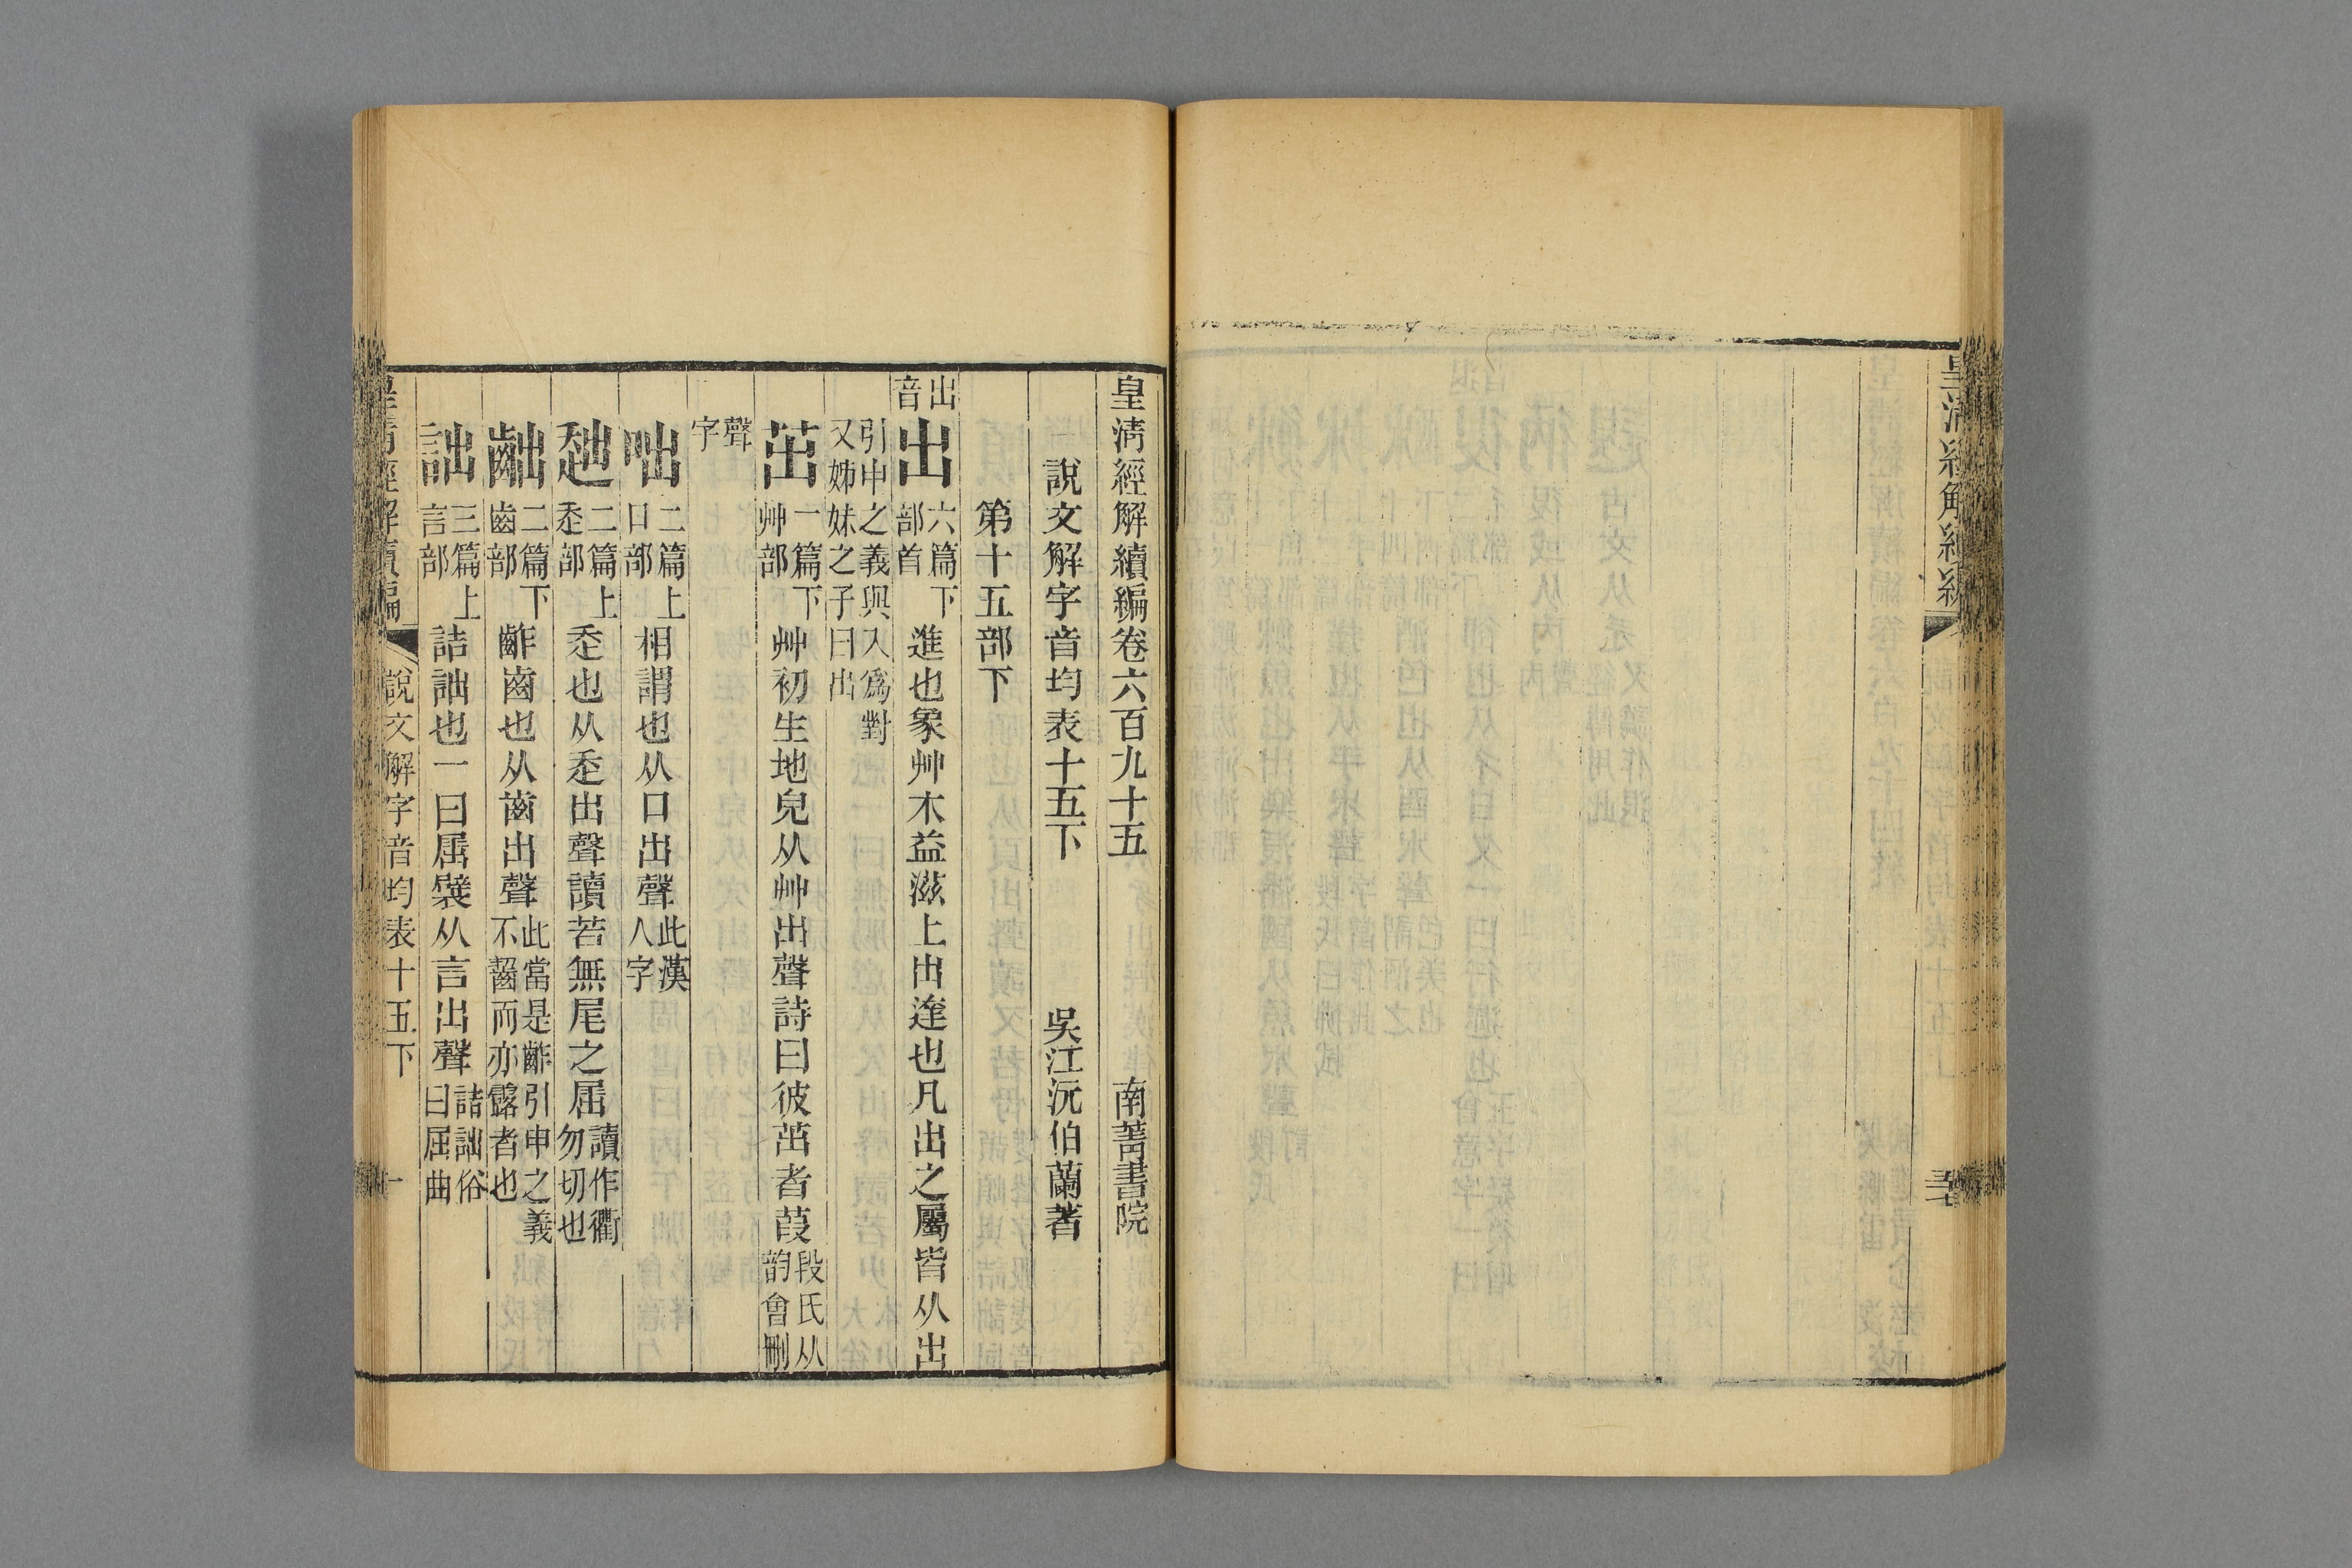 皇清經解續編
皇清經解續編卷六百九十五　南菁書院
說文解字音均表十五下　吳江沅伯蘭著
第十五部下
出音　出　六篇下部首　進也象艸木益滋上出達也凡出之屬皆从出
引申之義與入爲對又姊妹之子曰出
茁　一篇下艸部　艸初生地皃从艸出聲詩曰彼茁者葭　段氏从韵會刪
聲字
咄　二篇上口部　相謂也从口出聲　此漢人字
䞷　二篇上走部　走也从走出聲讀若無尾之屈　讀作衢勿切也
齣　二篇下齒部　齚齒也从齒出聲　此當是齚引申之義不齧而亦露者也
詘　三篇上言部　詰詘也一曰屈襞从言出聲　詰詘俗曰屈曲
皇清經解續編　說文解字音均表十五下　一